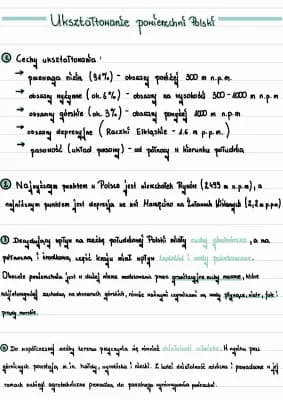 Ukształtowanie powierzchni Polski
① Cechy ukształtowania:
→ przewaga nizin (91%) - obszary poniżej 300 m n.p.m.
→ obszary wyżynne (ok. 6%) - obszary na wysokości 300-1000 m n.p.m.
→ obszary górskie (ok. 3%) - obszary powyżej 1000 m n.p.m
→ obszary depresyjne (Raczki Elbląskie - 1.8 m p.p.m.)
→ pasowość (układ pasowy) - od północy w kierunku południa
② Najwyższym punktem w Polsce jest wierzchołek Rysów (2499 m n.p.m), a
najniższym punktem jest depresja we wsi Marzęcino na Żuławach Wiślanych (2,2 m p.p.m)
③ Decydujący wpływ na rzeźbę południowej Polski miały ruchy górotwórcze, a na
północną i środkową część kraju miał wpływ lądolód i wody polodowcowe.
Obecnie powierzchnia jest w dalszej mierze modelowana przez grawitacyjne ruchy masowe, które
najintensywniej zachodzą na stokach górskich, równie ważnymi czynnikami są wody płynące, wiatr, fale i
prądy morskie.
④ Do współczesnej rzeźby terenu przyczynia się również działalność człowieka. W wyniku prac
górniczych powstają m.in. hałdy, wyrobiska i niecki. Z kolei działalność rolnicza i prowadzone w jej
ramach zabiegi agrotechniczne prowadzą do powolnego wyrównywania podłoża.